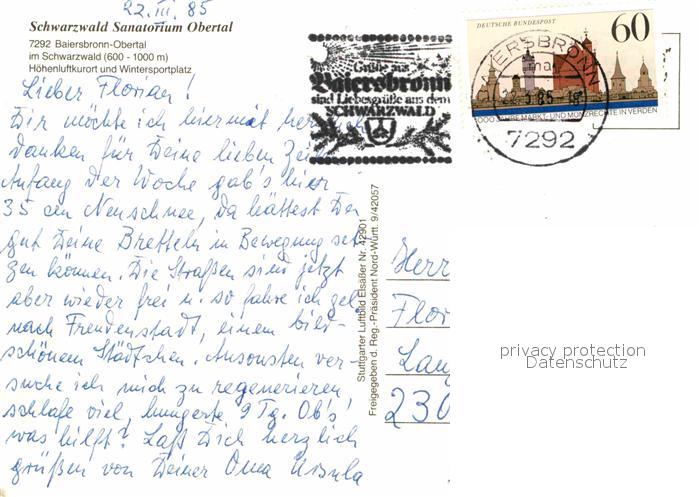 22.III.85
Schwarzwald Sanatorium Obertal
7292 Baiersbronn-Obertal
im Schwarzwald (600 - 1000 m)
Höhenluftkurort und Wintersportplatz
Lieber Florian!
Dir möchte ich hiermit
danken für Deine lieben
Anfang der Woche gab's hier
35 cm Neuschnee, da hättest Du
gut Deine Bretteln in Bewegung set-
zen können. Die Straßen sind jetzt
aber wieder frei u. so fahre ich
nach Freudenstadt, einem bild-
schönem Städtchen. Ansonsten ver-
suche ich mich zu regenerieren,
schlafe viel, hungerte 9 Tg. Ob's
was hilft? Laß Dich herzlich
grüßen von Deiner Oma Ursula
Grüße aus
Baiersbronn
sind Liebesgrüße aus dem
SCHWARZWALD
DEUTSCHE BUNDESPOST
60
1000 JAHRE MARKT- UND MÜNZRECHTE IN VERDEN
BAIERSBRONN
22.3.85-18
7292
Stuttgarter Luftbild Elsäßer Nr. 42901
Freigegeben d. Reg.-Präsident Nord-Württ. 9/42057
Herr
Flor
Lan
230
privacy protection
Datenschutz